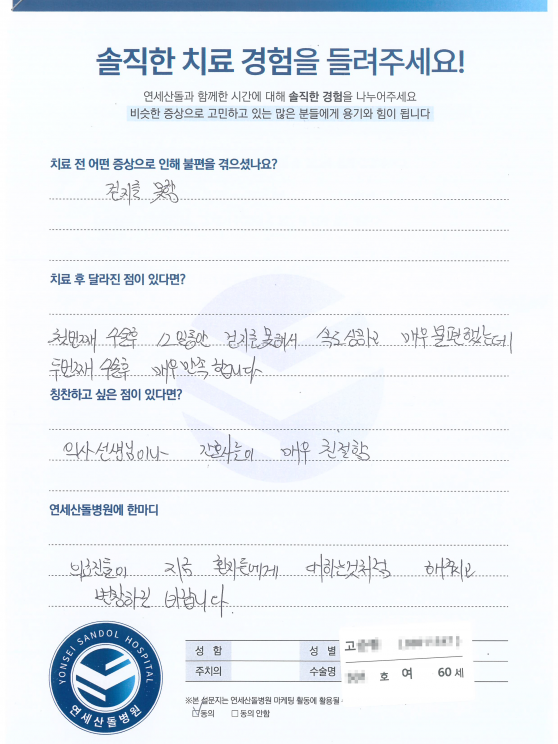 솔직한 치료 경험을 들려주세요!
연세산돌과 함께한 시간에 대해 솔직한 경험을 나누어주세요
비슷한 증상으로 고민하고 있는 많은 분들에게 용기와 힘이 됩니다
치료 전 어떤 증상으로 인해 불편을 겪으셨나요?
걷지를 못함
치료 후 달라진 점이 있다면?
첫번째 수술후 12일동안 걷지를 못해서 속도 상하고 매우 불편했는데
두번째 수술후 매우 만족합니다
칭찬하고 싶은 점이 있다면?
의사선생님이나 간호사들이 매우 친절함
연세산돌병원에 한마디
의료진들이 지금 환자들에게 대하는것처럼 해주시고
번창하길 바랍니다.
YONSEI SANDOL HOSPITAL
연세산돌병원
성 함 성 별 고
주치의 수술명 호 여 60세
※본 설문지는 연세산돌병원 마케팅 활동에 활용될
☑동의 □동의 안함